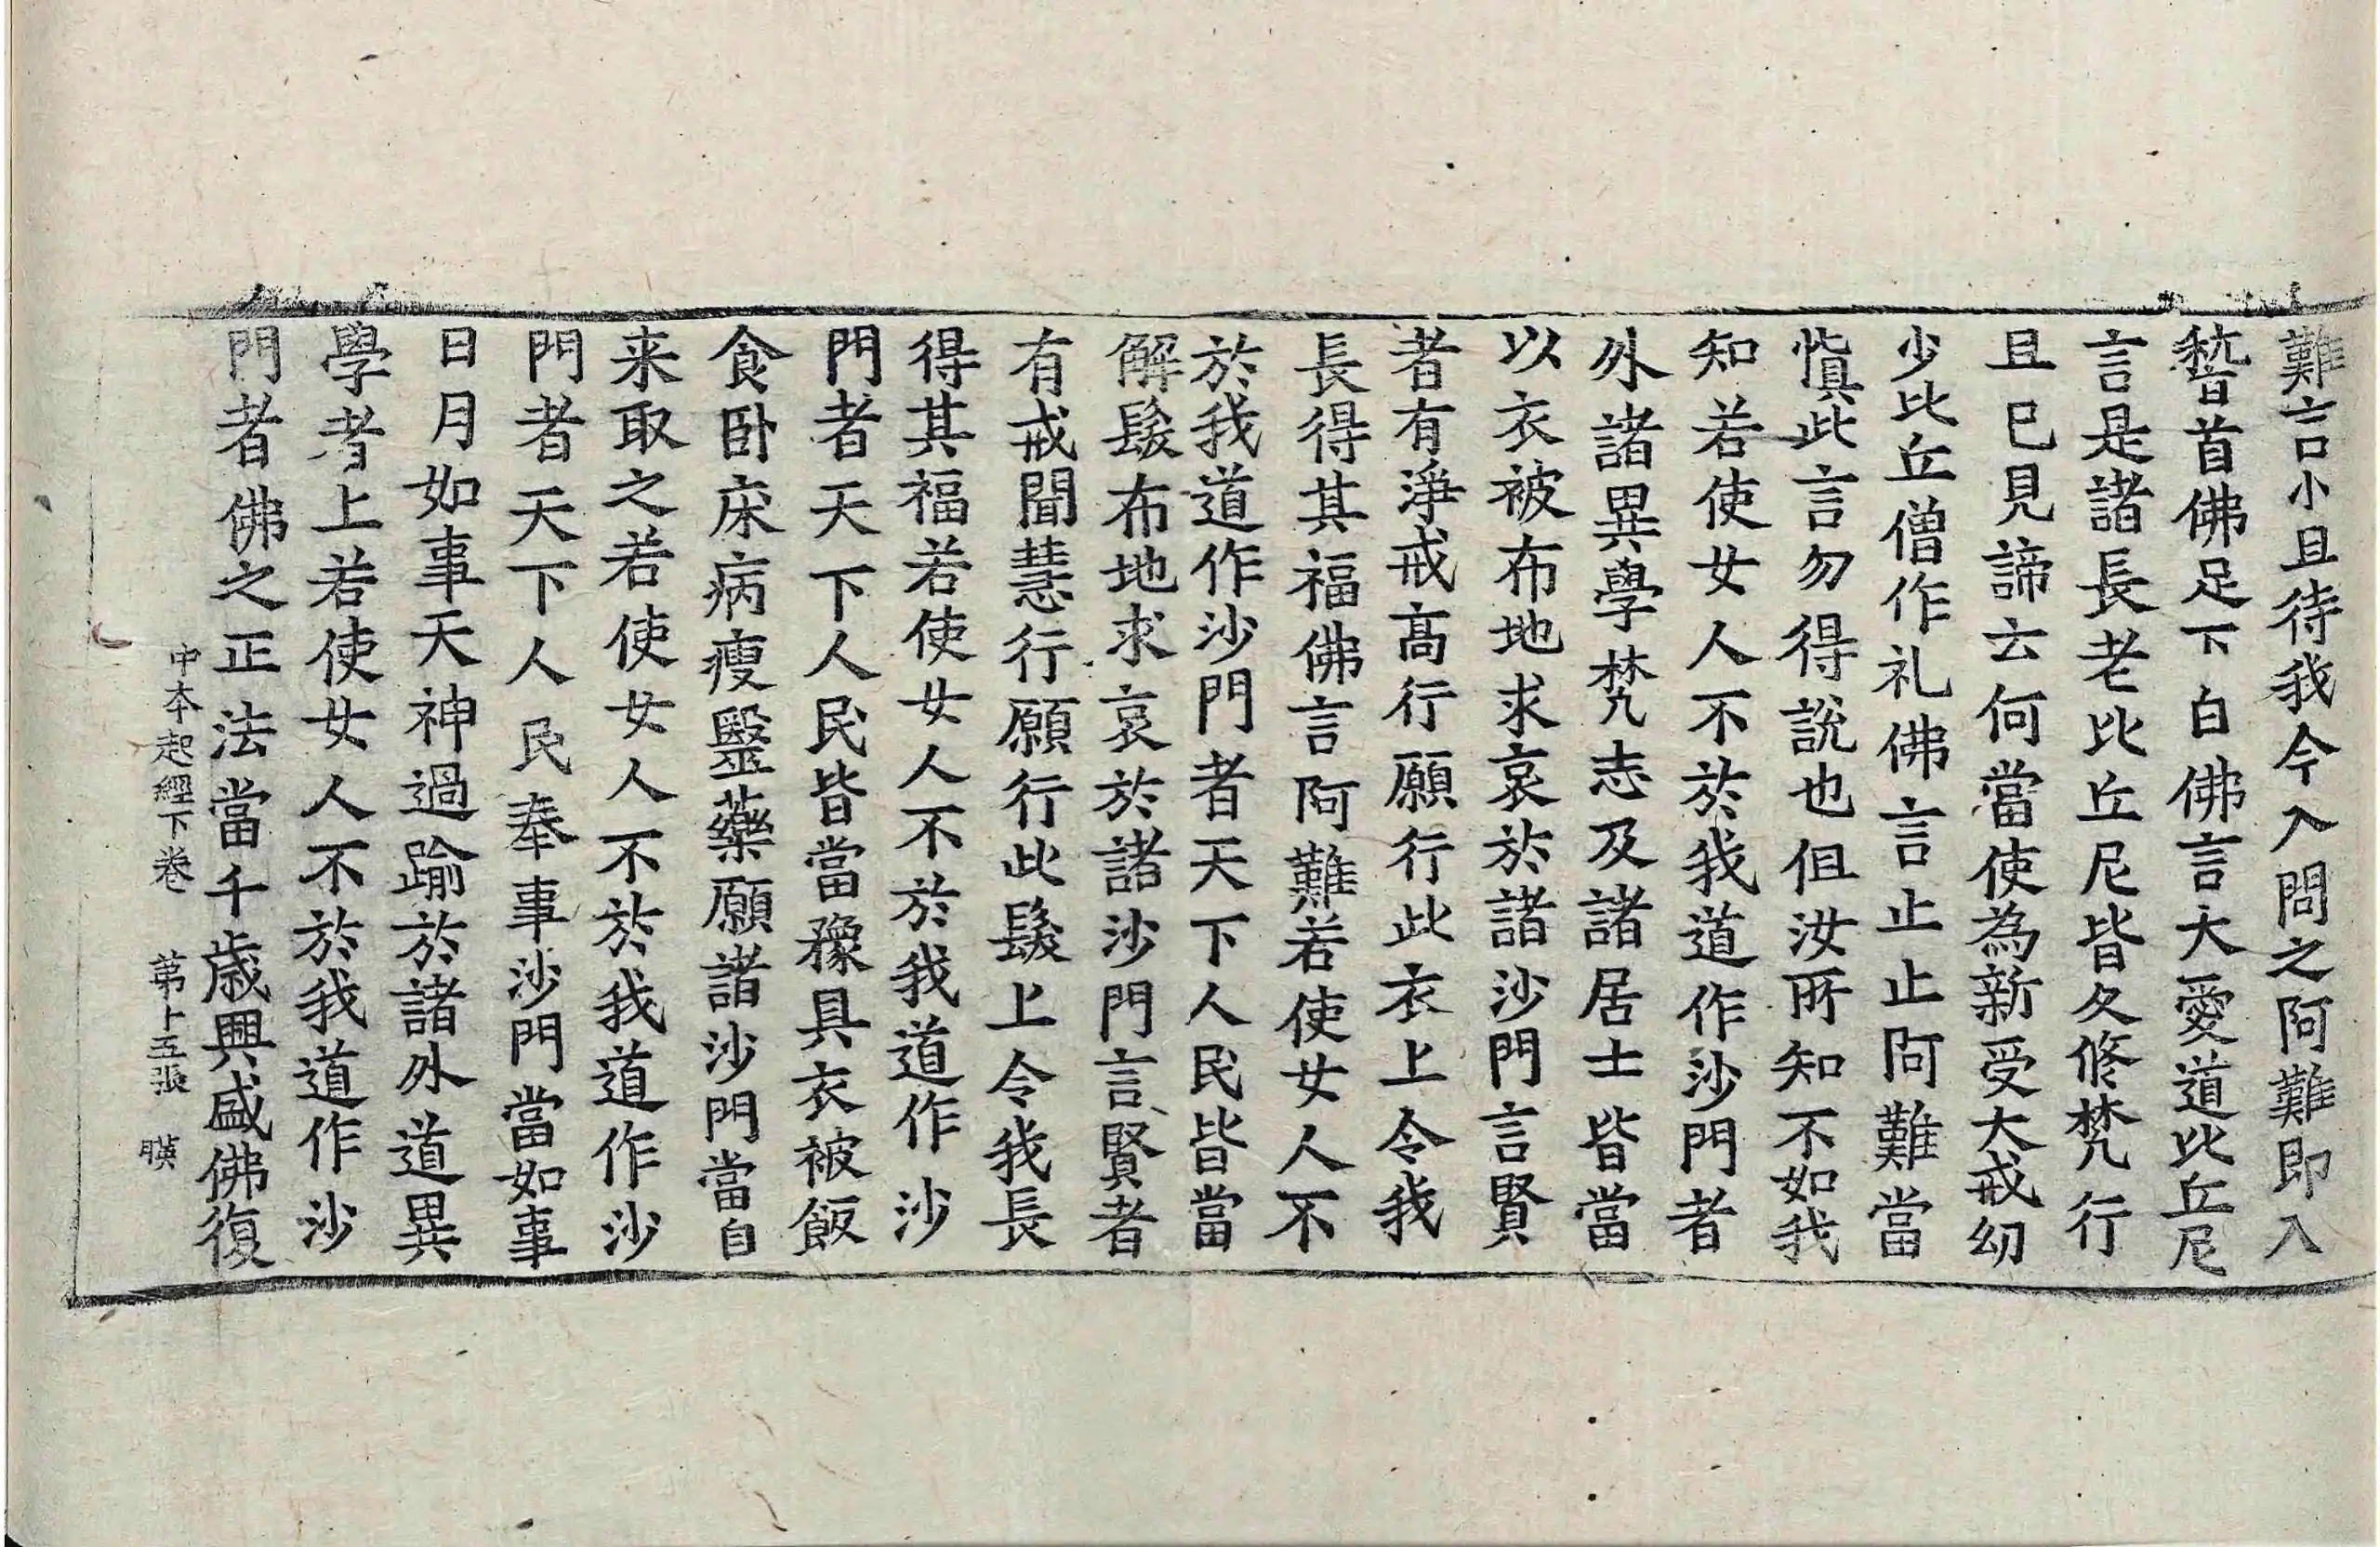 難言小且待我今入問之阿難即入
嵆首佛足下白佛言大愛道比丘尼
言是諸長老比丘尼皆久修梵行
且已見諦云何當使為新受大戒幼
少比丘僧作礼佛言止止阿難當
慎此言勿得說也但汝所知不如我
知若使女人不於我道作沙門者
外諸異學梵志及諸居士皆當
以衣被布地求哀於諸沙門言賢
者有淨戒高行願行此衣上令我
長得其福佛言阿難若使女人不
於我道作沙門者天下人民皆當
解髮布地求哀於諸沙門言賢者
有戒聞慧行願行此髮上令我長
得其福若使女人不於我道作沙
門者天下人民皆當豫具衣被飯
食卧床病瘦毉藥願諸沙門當自
来取之若使女人不於我道作沙
門者天下人民奉事沙門當如事
日月如事天神過踰於諸外道異
學者上若使女人不於我道作沙
門者佛之正法當千歳興盛佛復
中本起經下卷 苐十五張